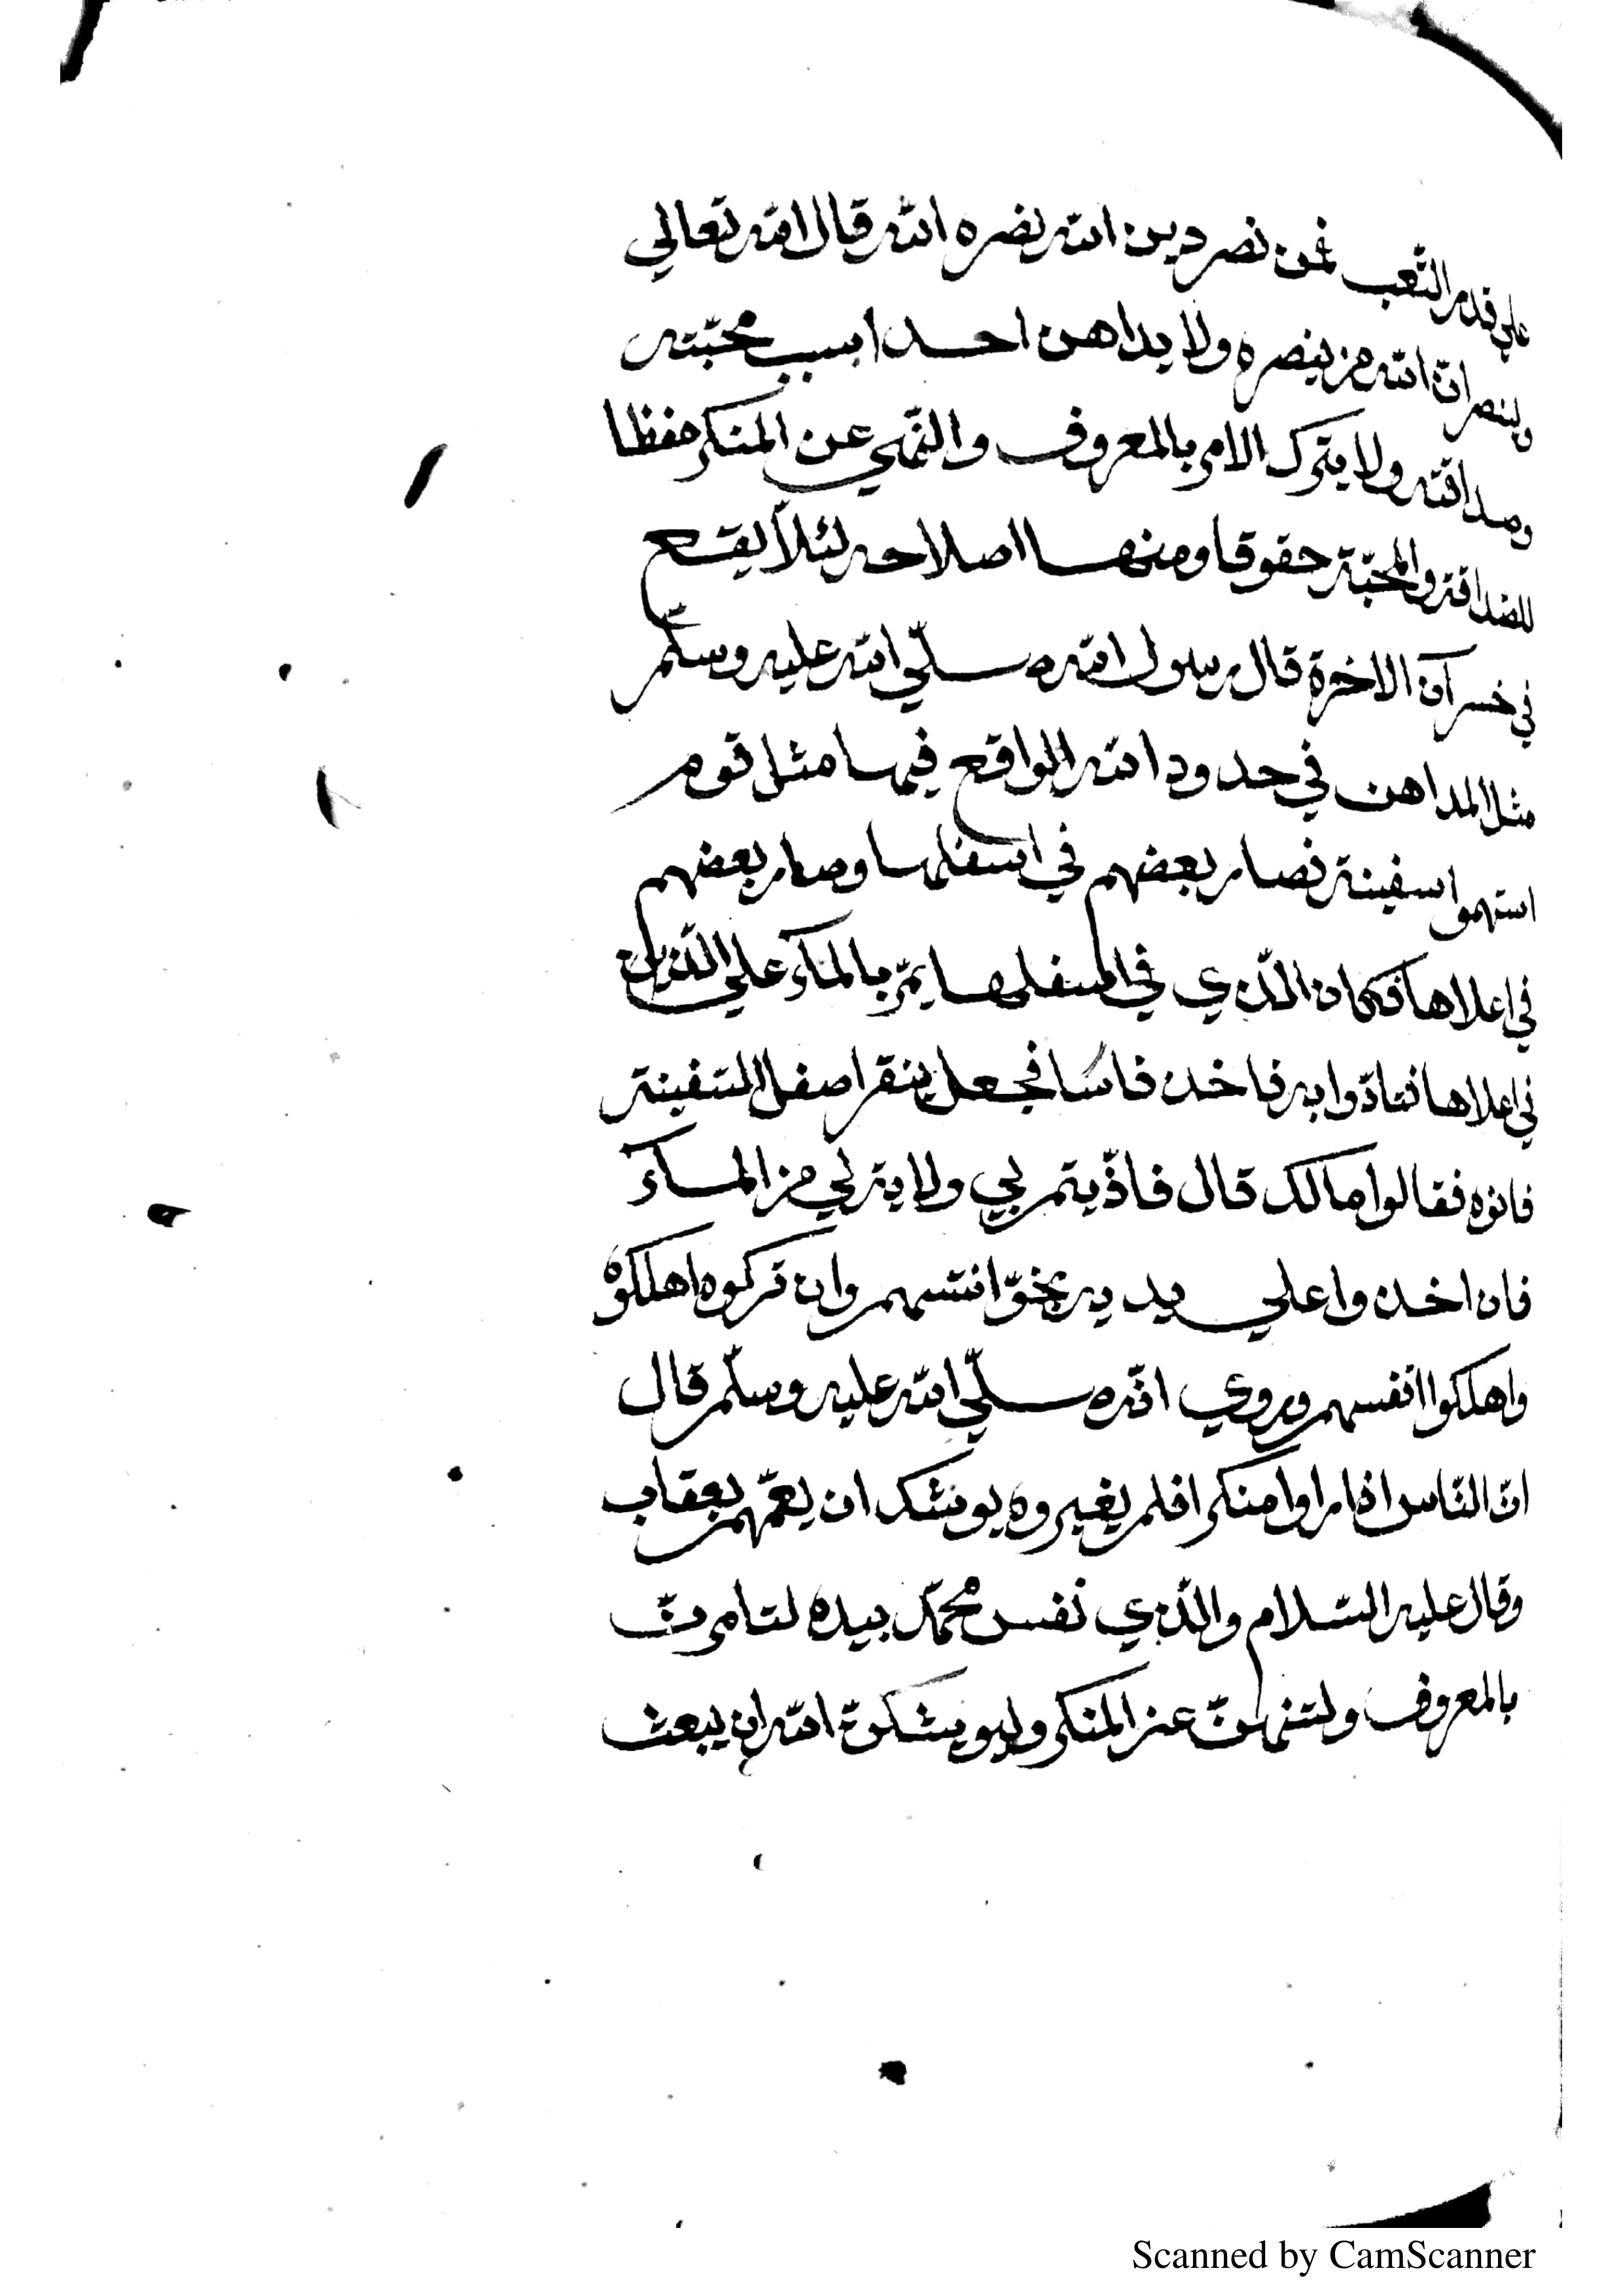 علي قدر التعب فمن نصر دين الله نصره الله قال الله تعالي
ولينصرانّ الله من ينصره ولا يداهن احدا بسبب محبّته
وصداقته ولا يترك الامر بالمعروف والنّهي عن المنكر حفظا
للصداقة والمحبّة حقوقا ومنها اصلاحه لئلاّ يقع
في خسران الاخرة قال رسول الله صلّي الله عليه وسلّم
مثل المداهن في حدود الله الواقع فيها مثل قوم
استهموا سفينة فصار بعضهم في اسفلها وصار بعضهم
في اعلاها فكان الّذي في اسفلها يمرّ بالمآء علي الّذين
في اعلاها فتاذّوا به فاخذ فاسا فجعل ينقر اصفل السّفينة
فاتوه فقالوا مالك قال تاذّيتم بي ولا بد لي من المآء
فان اخذوا علي يديه نجوّا انفسهم وان تركوه اهلكوه
واهلكوا انفسهم وروي انّه صلّي الله عليه وسلّم قال
انّ النّاس اذا راوا منكرا فلم يغيروه يوشك ان يعمّهم بعقاب
وقال عليه السّلام والّذي نفس محمّد بيده لتامرنّ
بالمعروف ولتنهنّ عن المنكر وليوشكنّ الله ان يبعث
Scanned by CamScanner